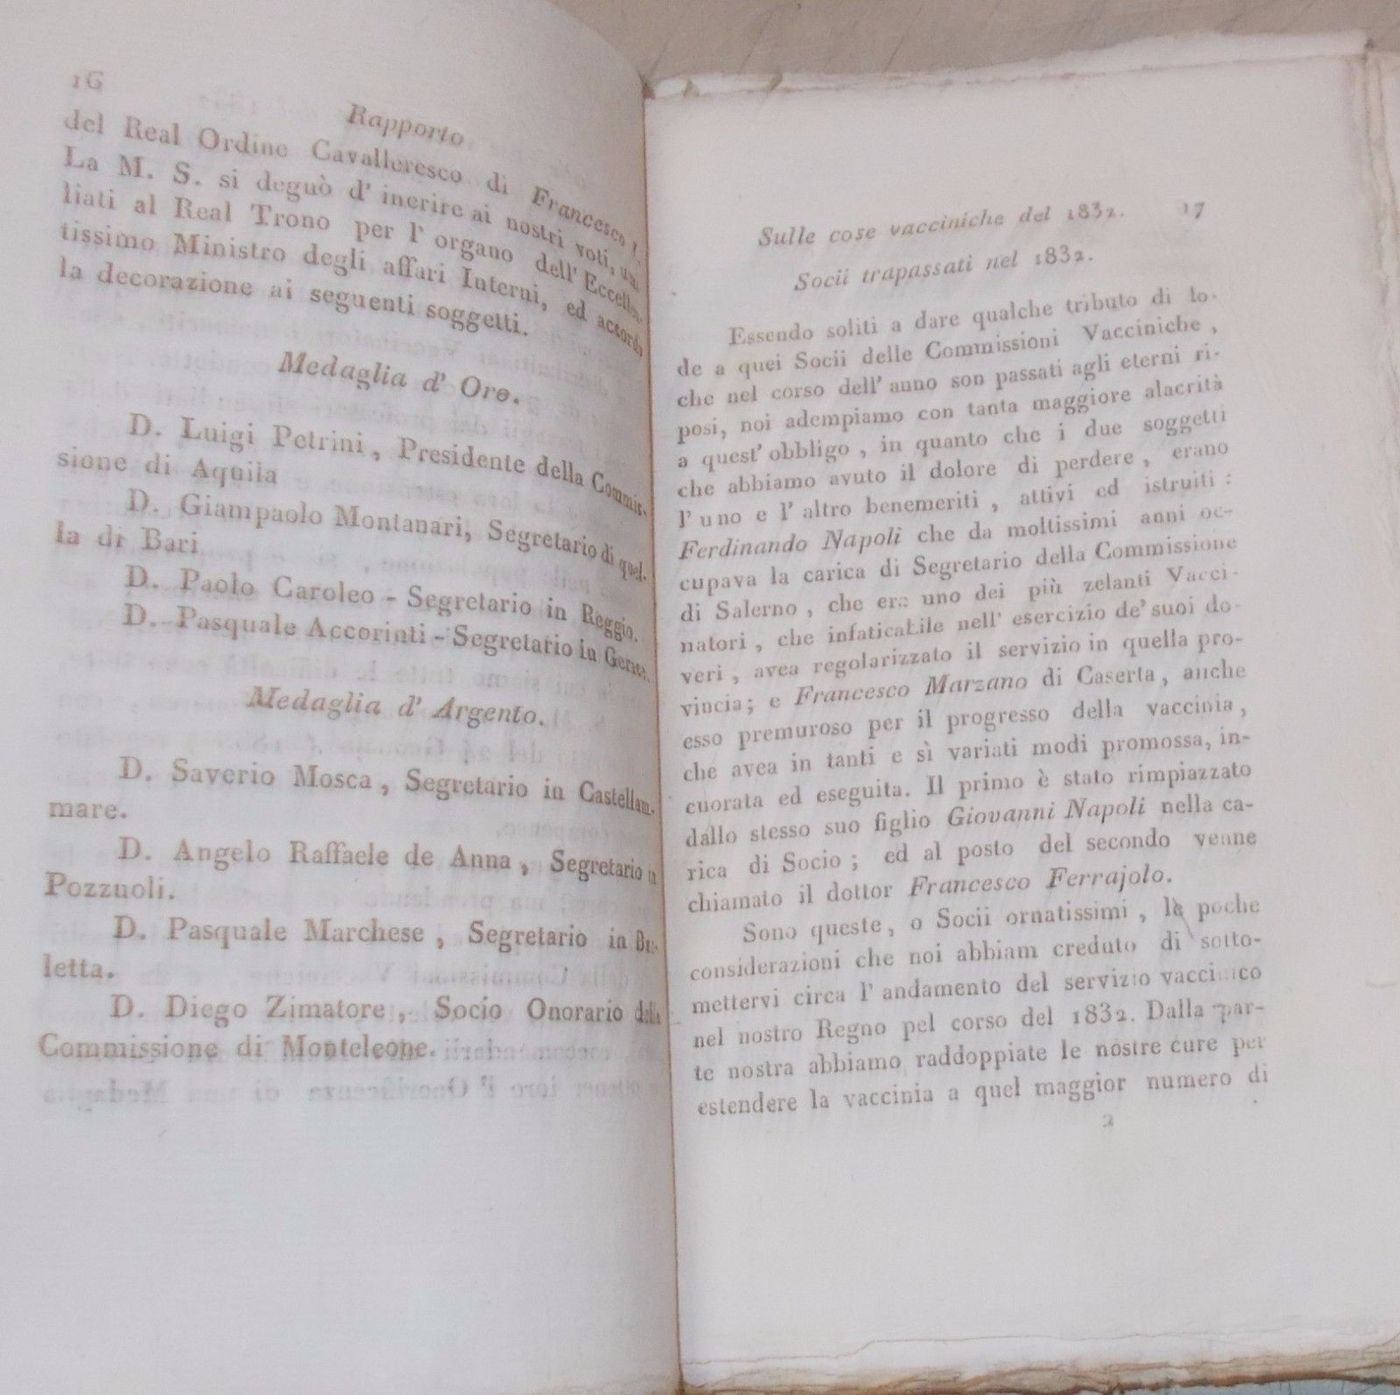 16
Rapporto
del Real Ordine Cavalleresco di Francesco I.
La M. S. si deguò d' inerire ai nostri voti, umi-
liati al Real Trono per l' organo dell' Eccellen-
tissimo Ministro degli affari Interni, ed accordò
la decorazione ai seguenti soggetti.
Medaglia d' Oro.
D. Luigi Petrini, Presidente della Commis-
sione di Aquila
D. Giampaolo Montanari, Segretario di quel-
la di Bari
D. Paolo Caroleo - Segretario in Reggio.
D. Pasquale Accorinti - Segretario in Gerace.
Medaglia d' Argento.
D. Saverio Mosca, Segretario in Castellam-
mare.
D. Angelo Raffaele de Anna, Segretario in
Pozzuoli.
D. Pasquale Marchese, Segretario in Bar-
letta.
D. Diego Zimatore, Socio Onorario della
Commissione di Monteleone.
Sulle cose vacciniche del 1832. 17
Socii trapassati nel 1832.
Essendo soliti a dare qualche tributo di lo-
de a quei Socii delle Commissioni Vacciniche,
che nel corso dell' anno son passati agli eterni ri-
posi, noi adempiamo con tanta maggiore alacrità
a quest' obbligo, in quanto che i due soggetti
che abbiamo avuto il dolore di perdere, erano
l' uno e l' altro benemeriti, attivi ed istruiti:
Ferdinando Napoli che da moltissimi anni oc-
cupava la carica di Segretario della Commissione
di Salerno, che era uno dei più zelanti Vacci-
natori, che infaticabile nell' esercizio de' suoi do-
veri, avea regolarizzato il servizio in quella pro-
vincia; e Francesco Marzano di Caserta, anche
esso premuroso per il progresso della vaccinia,
che avea in tanti e sì variati modi promossa, in-
cuorata ed eseguita. Il primo è stato rimpiazzato
dallo stesso suo figlio Giovanni Napoli nella ca-
rica di Socio; ed al posto del secondo venne
chiamato il dottor Francesco Ferrajolo.
Sono queste, o Socii ornatissimi, le poche
considerazioni che noi abbiam creduto di sotto-
mettervi circa l' andamento del servizio vaccinico
nel nostro Regno pel corso del 1832. Dalla par-
te nostra abbiamo raddoppiate le nostre cure per
estendere la vaccinia a quel maggior numero di
2